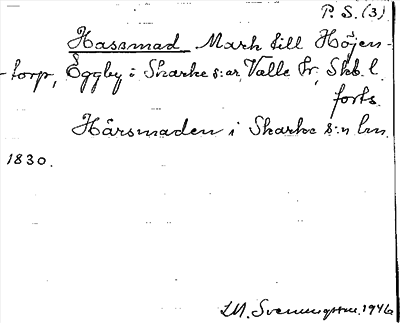 P. S. (3)
Hassmad Mark till Höjen-
torp, Eggby i Skarke s:ar, Valle hr, Skb. l.
forts.
Hårsmaden i Skarke s:n lm.
1830.
1946